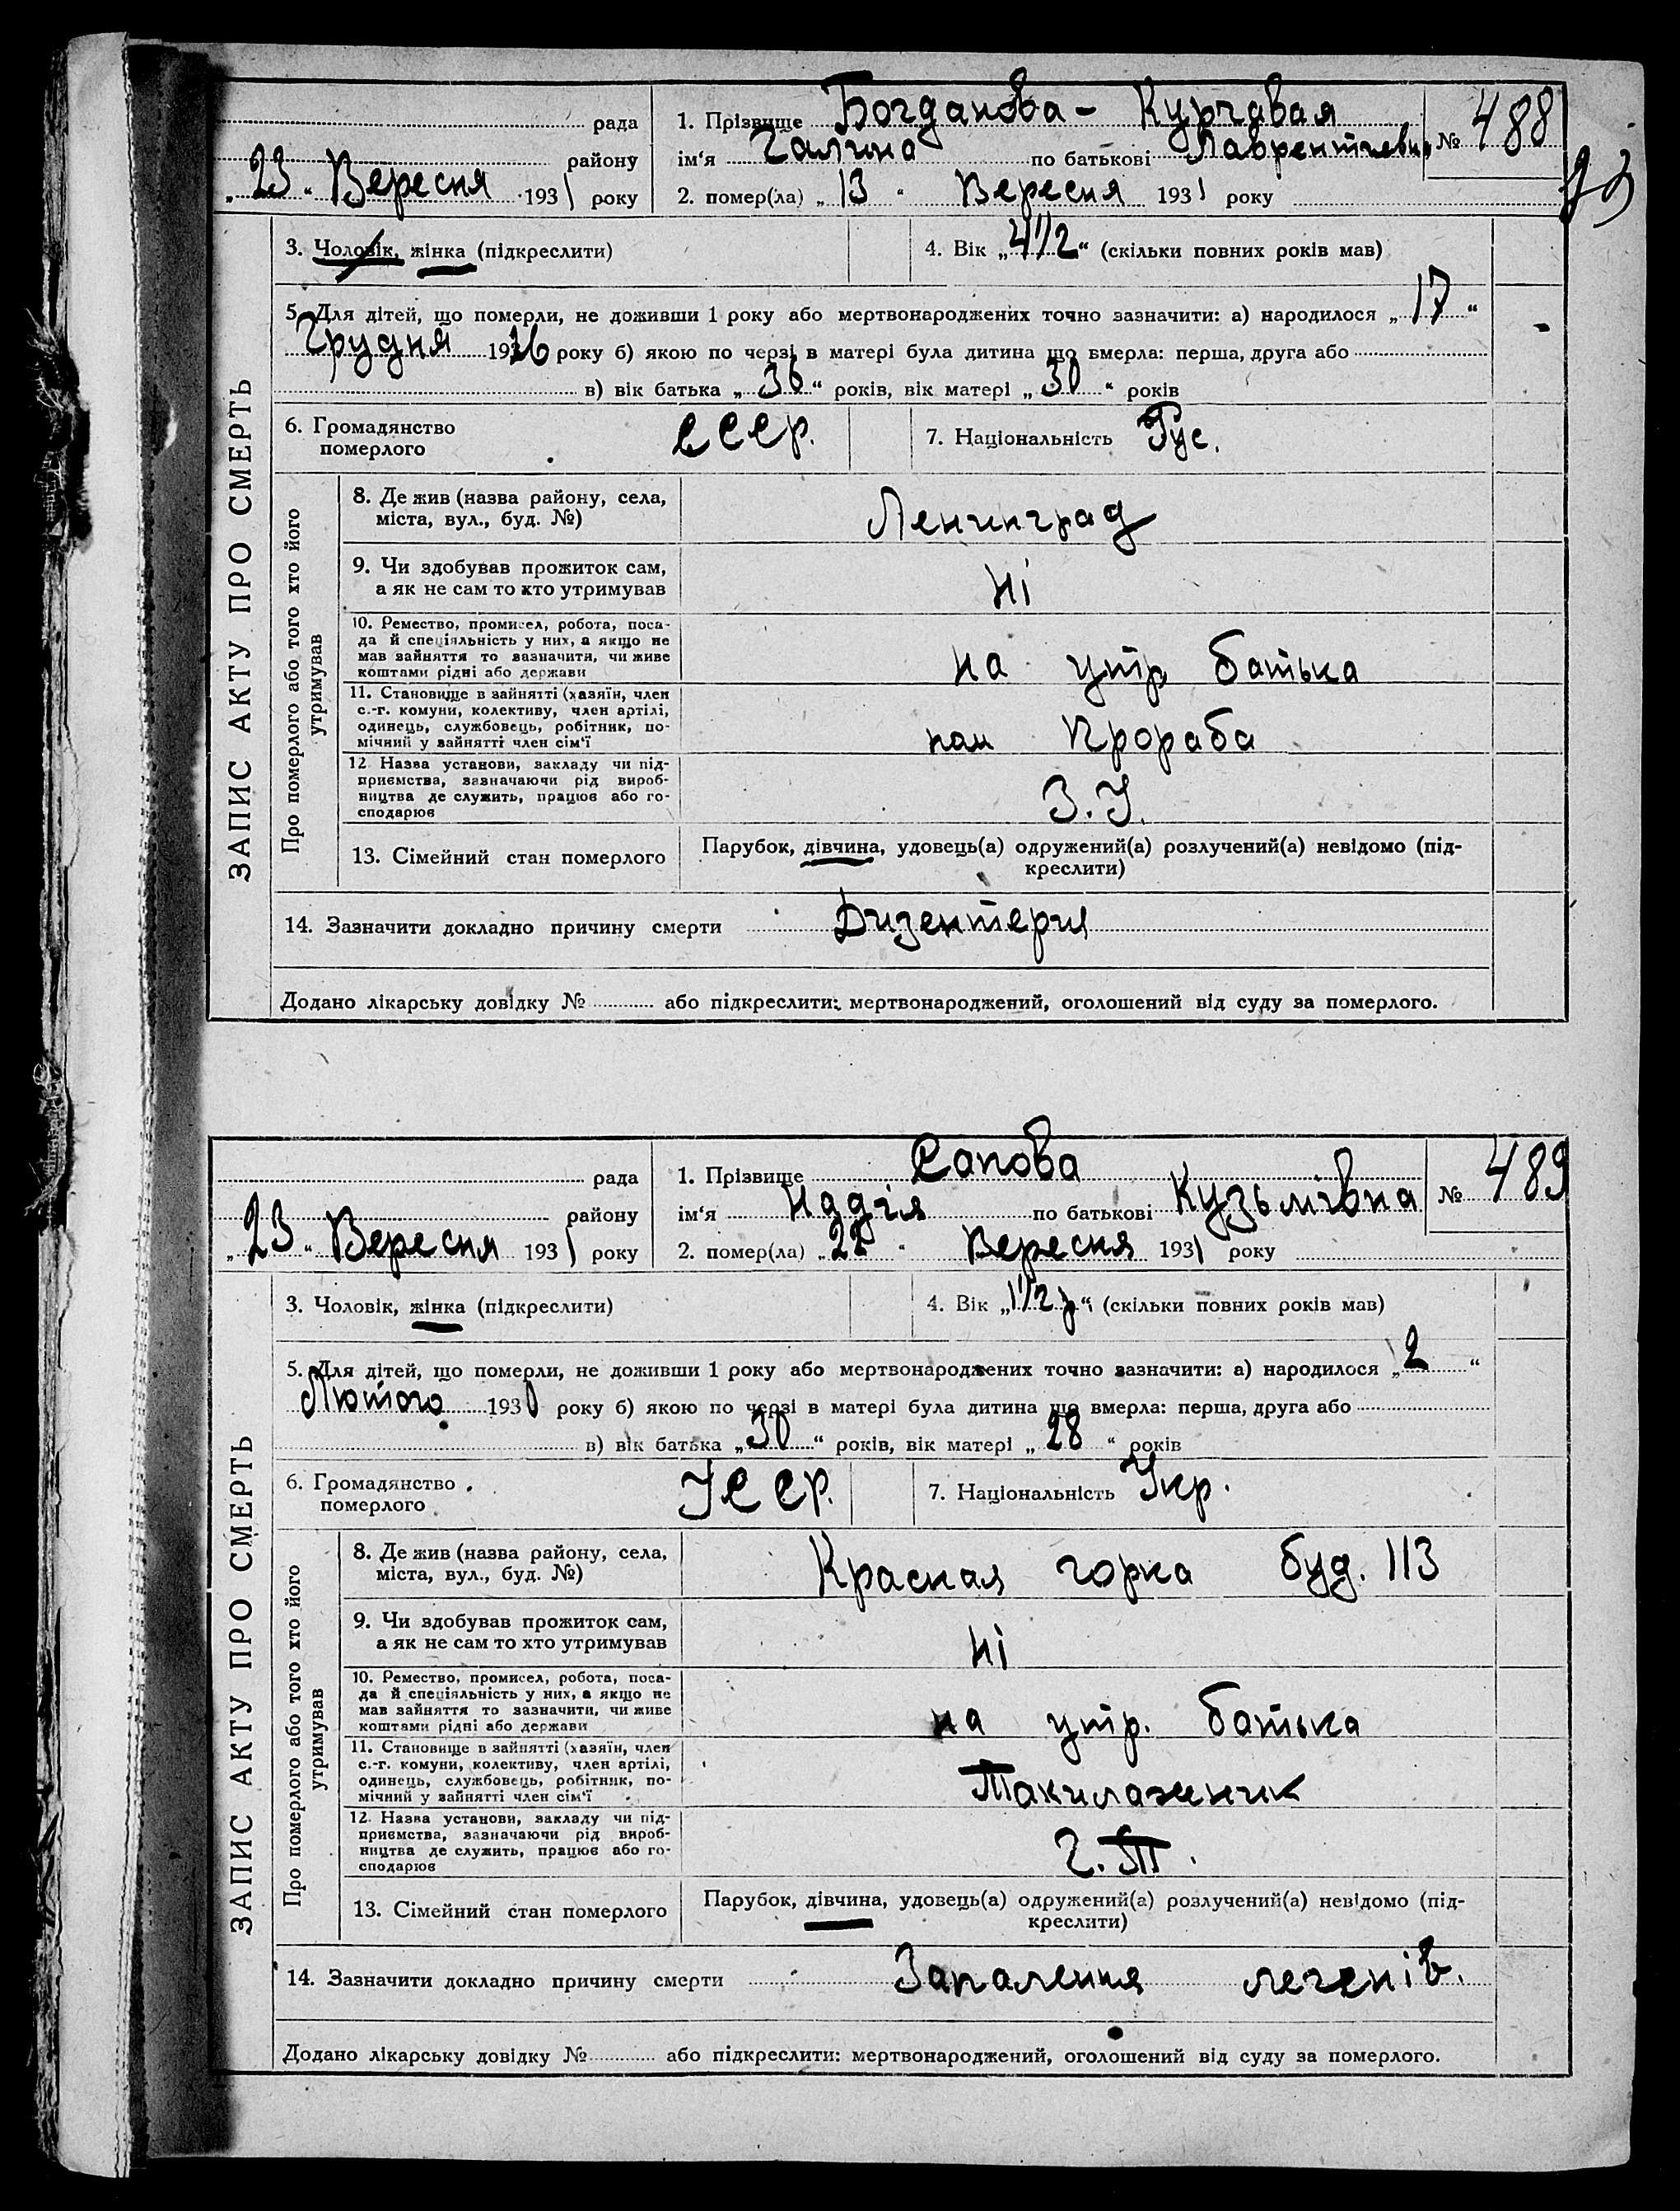 рада
1. Прізвище Богданова - Курчавая
№ 488
району
ім'я Галина по батькові Лаврентиевн
„23" Вересня 1931 року
2. помер(ла) „13" Вересня 1931 року
3. Чоловік, жінка (підкреслити)
4. Вік „4 1/2" (скільки повних років мав)
5. Для дітей, що померли, не доживши 1 року або мертвонароджених точно зазначити: а) народилося „17"
Грудня 1926 року б) якою по черзі в матері була дитина що вмерла: перша, друга або
в) вік батька „36" років, вік матері „30" років
6. Громадянство
померлого
СССР.
7. Національність Рус.
ЗАПИС АКТУ ПРО СМЕРТЬ
Про померлого або того хто його
утримував
8. Де жив (назва району, села,
міста, вул., буд. №)
Ленинград
9. Чи здобував прожиток сам,
а як не сам то хто утримував
Ні
10. Ремество, промисел, робота, поса-
да й спеціяльність у них, а якщо не
мав зайняття то зазначити, чи живе
коштами рідні або держави
на утр батька
11. Становище в зайнятті (хазяїн, член
с.-г. комуни, колективу, член артілі,
одинець, службовець, робітник, по-
мічний у зайнятті член сім'ї
пом Прораба
12 Назва установи, закладу чи під-
приємства, зазначаючи рід вироб-
ництва де служить, працює або го-
сподарює
З. У.
13. Сімейний стан померлого
Парубок, дівчина, удовець(а) одружений(а) розлучений(а) невідомо (під-
креслити)
14. Зазначити докладно причину смерти Дизентерия
Додано лікарську довідку № або підкреслити: мертвонароджений, оголошений від суду за померлого.
рада
1. Прізвище Сапова
№ 489
району
ім'я Надія по батькові Кузьмівна
„23" Вересня 1931 року
2. помер(ла) „22" Вересня 1931 року
3. Чоловік, жінка (підкреслити)
4. Вік „1 1/2 р" (скільки повних років мав)
5. Для дітей, що померли, не доживши 1 року або мертвонароджених точно зазначити: а) народилося „2"
Лютого 1930 року б) якою по черзі в матері була дитина що вмерла: перша, друга або
в) вік батька „30" років, вік матері „28" років
6. Громадянство
померлого
УССР.
7. Національність Укр.
ЗАПИС АКТУ ПРО СМЕРТЬ
Про померлого або того хто його
утримував
8. Де жив (назва району, села,
міста, вул., буд. №)
Красная горка буд. 113
9. Чи здобував прожиток сам,
а як не сам то хто утримував
Ні
10. Ремество, промисел, робота, поса-
да й спеціяльність у них, а якщо не
мав зайняття то зазначити, чи живе
коштами рідні або держави
на утр. батька
11. Становище в зайнятті (хазяїн, член
с.-г. комуни, колективу, член артілі,
одинець, службовець, робітник, по-
мічний у зайнятті член сім'ї
Такилаженик
12. Назва установи, закладу чи під-
приємства, зазначаючи рід вироб-
ництва де служить, працює або го-
сподарює
Г. Т.
13. Сімейний стан померлого
Парубок, дівчина, удовець(а) одружений(а) розлучений(а) невідомо (під-
креслити)
14. Зазначити докладно причину смерти Запалення легенів.
Додано лікарську довідку № або підкреслити: мертвонароджений, оголошений від суду за померлого.